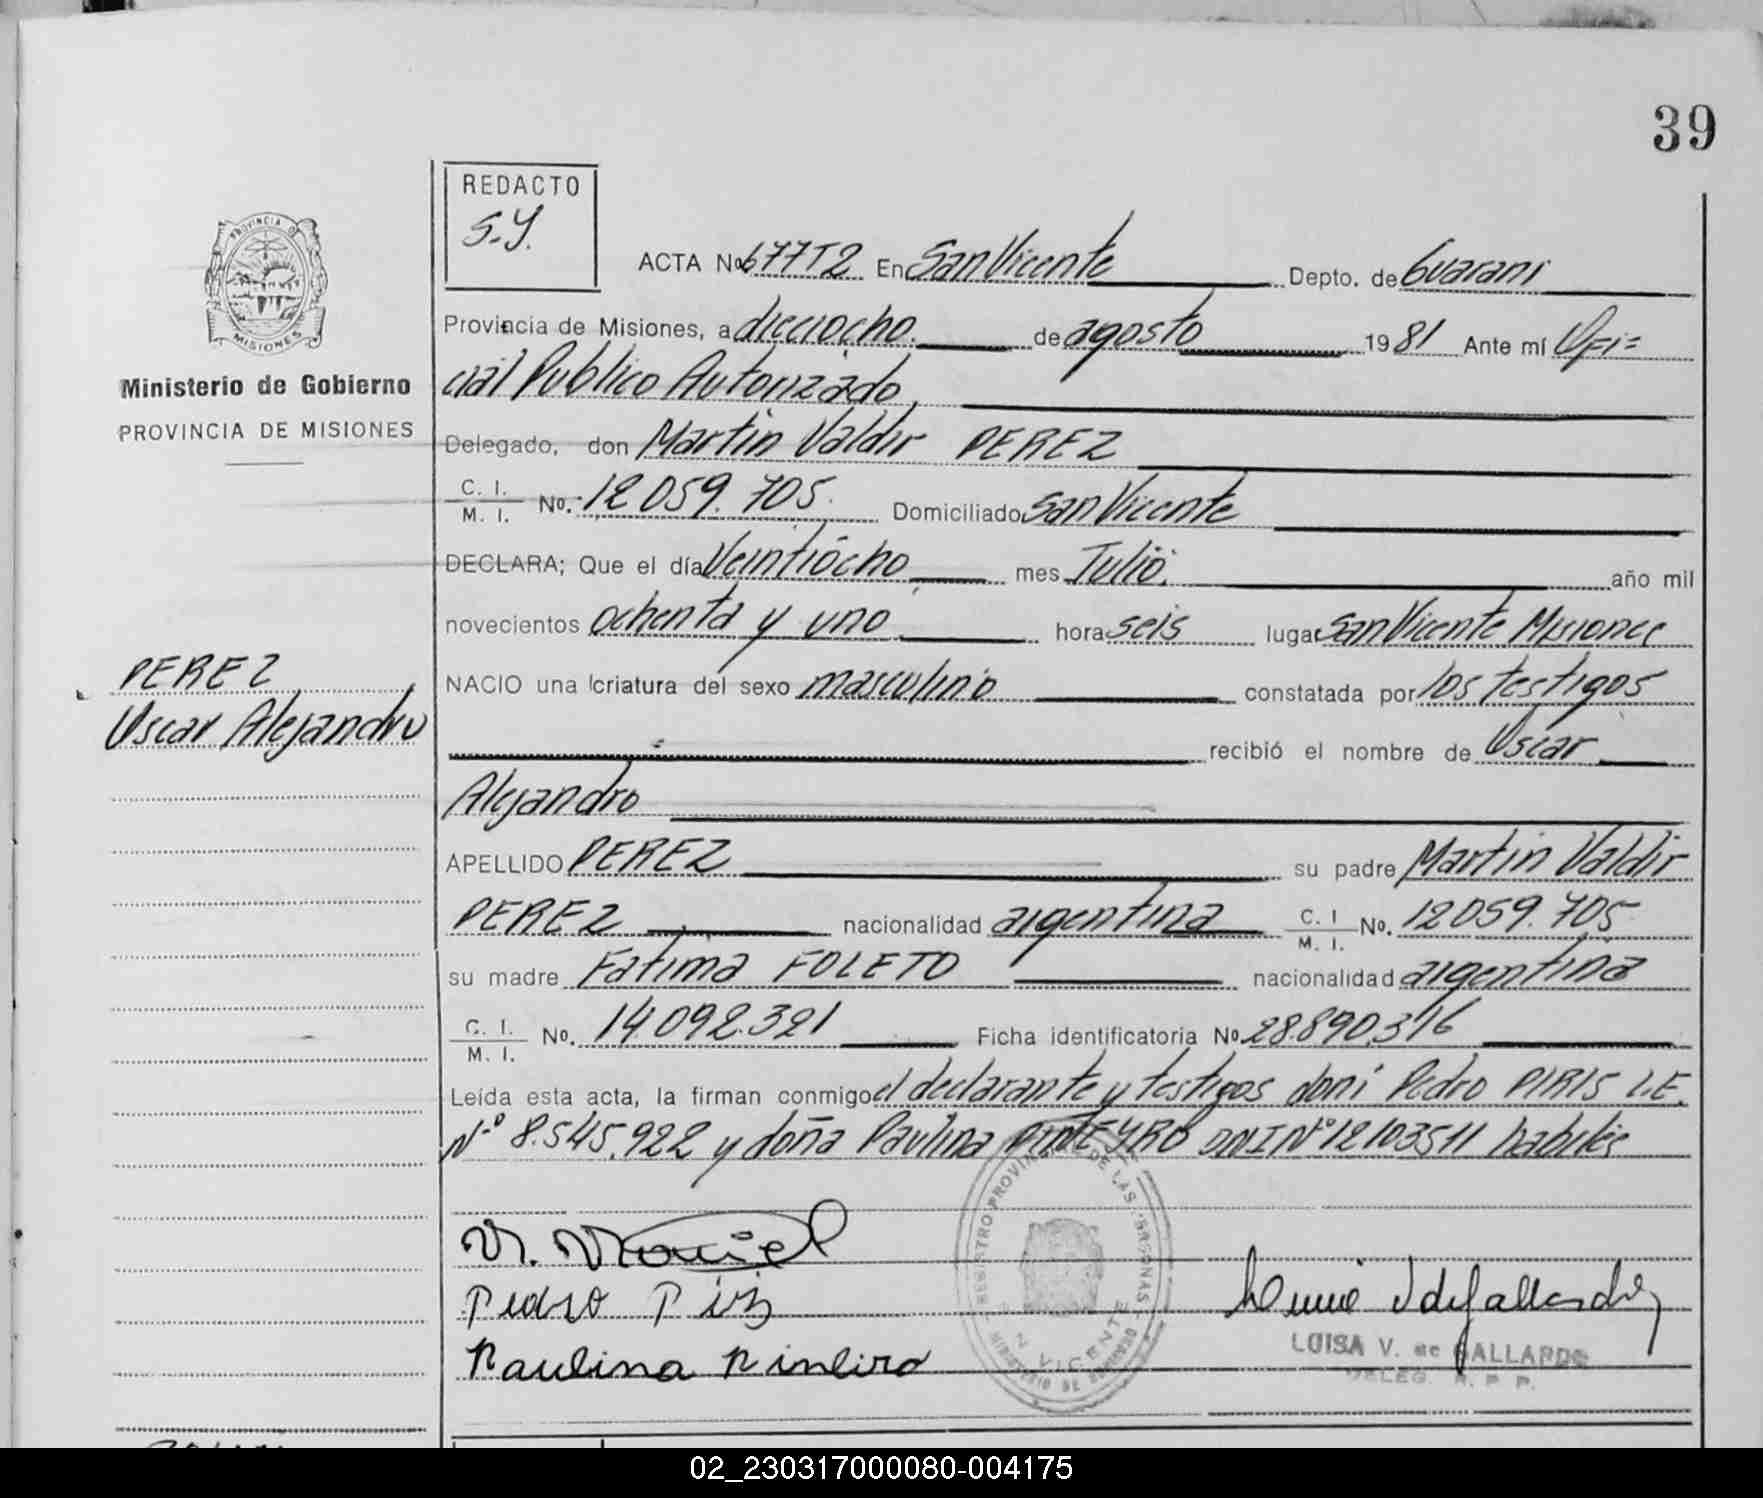 39
REDACTO
S.Y.
PROVINCIA DE
MISIONES
Ministerio de Gobierno
PROVINCIA DE MISIONES
ACTA No 677T2 En San Vicente Depto. de Guarani
Provincia de Misiones, a dieciocho. de agosto 1981 Ante mí Ofi=
cial Publico Autorizado
Delegado, don Martin Valdir PEREZ
C. I.
M. I. No. 12.059.705. Domiciliado San Vicente
DECLARA; Que el día Veintiocho mes Julio. año mil
novecientos ochenta y uno hora seis lugar San Vicente Misiones
PEREZ
Oscar Alejandro
NACIO una criatura del sexo masculino constatada por los testigos
recibió el nombre de Oscar
Alejandro
APELLIDO PEREZ su padre Martin Valdir
PEREZ nacionalidad argentina C. I M. I. No. 12059.705
su madre Fatima FOLETO nacionalidad argentina
C. I.
M. I. No. 14.092.321 Ficha identificatoria No. 28.890.316
Leída esta acta, la firman conmigo el declarante y testigos don: Pedro PIRIS L.E.
Nº 8.545.922 y doña Paulina PIÑEYRO DNI Nº 12103511 habiles
REGISTRO PROVINCIAL DE LAS PERSONAS
MINISTERIO DE GOBIERNO
VICENTE
Pedro Piriz
Paulina Pineiro
LUISA V. de GALLARDO
DELEG. R. P. P.
02_230317000080-004175